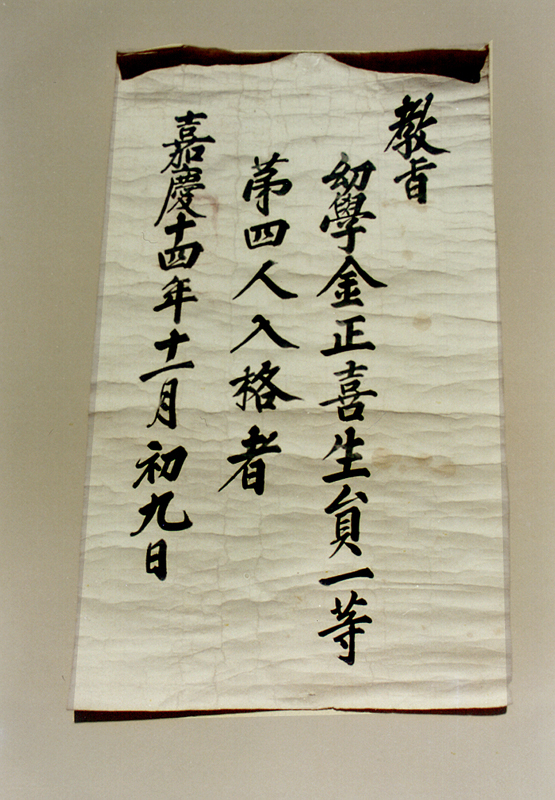 敎旨
幼學金正喜生員一等
第四人入格者
嘉慶十四年十一月初九日